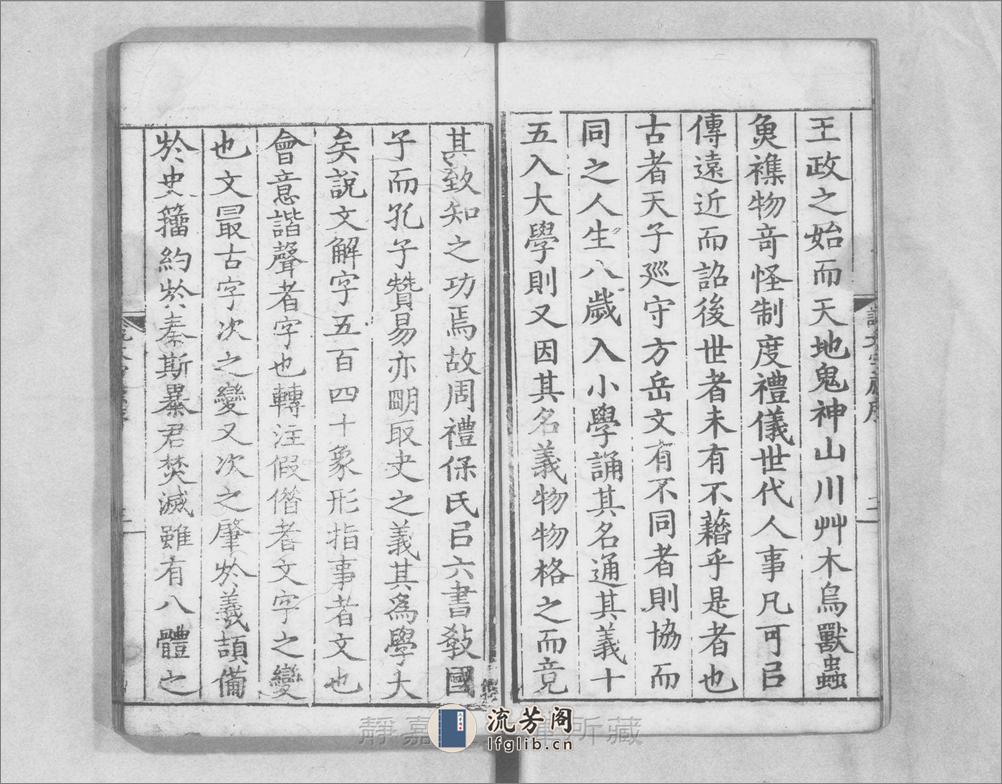 王政之始而天地鬼神山川艸木鳥獸蟲
魚襍物奇怪制度禮儀世代人事凡可㠯
傳遠近而詔後世者未有不藉乎是者也
古者天子廵守方岳文有不同者則協而
同之人生八歲入小學誦其名通其義十
五入大學則又因其名義物物格之而竟
其致知之功焉故周禮保氏㠯六書敎國
子而孔子贊易亦朙取史之義其為學大
矣說文解字五百四十象形指事者文也
會意諧聲者字也轉注假僣者文字之變
也文最古字次之變又次之肇於羲頡備
於史籒約於秦斯暴君焚滅雖有八體之
靜嘉 所藏
流芳阁
lfglib.cn